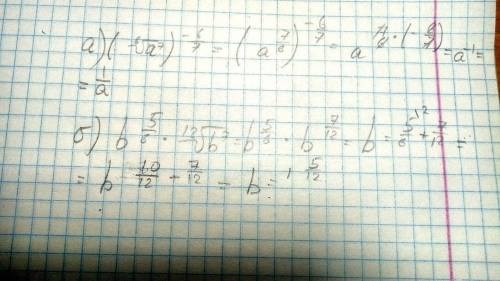 а) (⁶√a⁷)^(-6/7) = (a^(7/6))^(-6/7) = a^(7/6·(-6/7)) = a⁻¹ =
= 1/a
б) b^(5/6) · ¹²√b⁷ = b^(5/6) · b^(7/12) = b = 5/6^(\2) + 7/12 =
= b 10/12 - 7/12 = b = 1 5/12